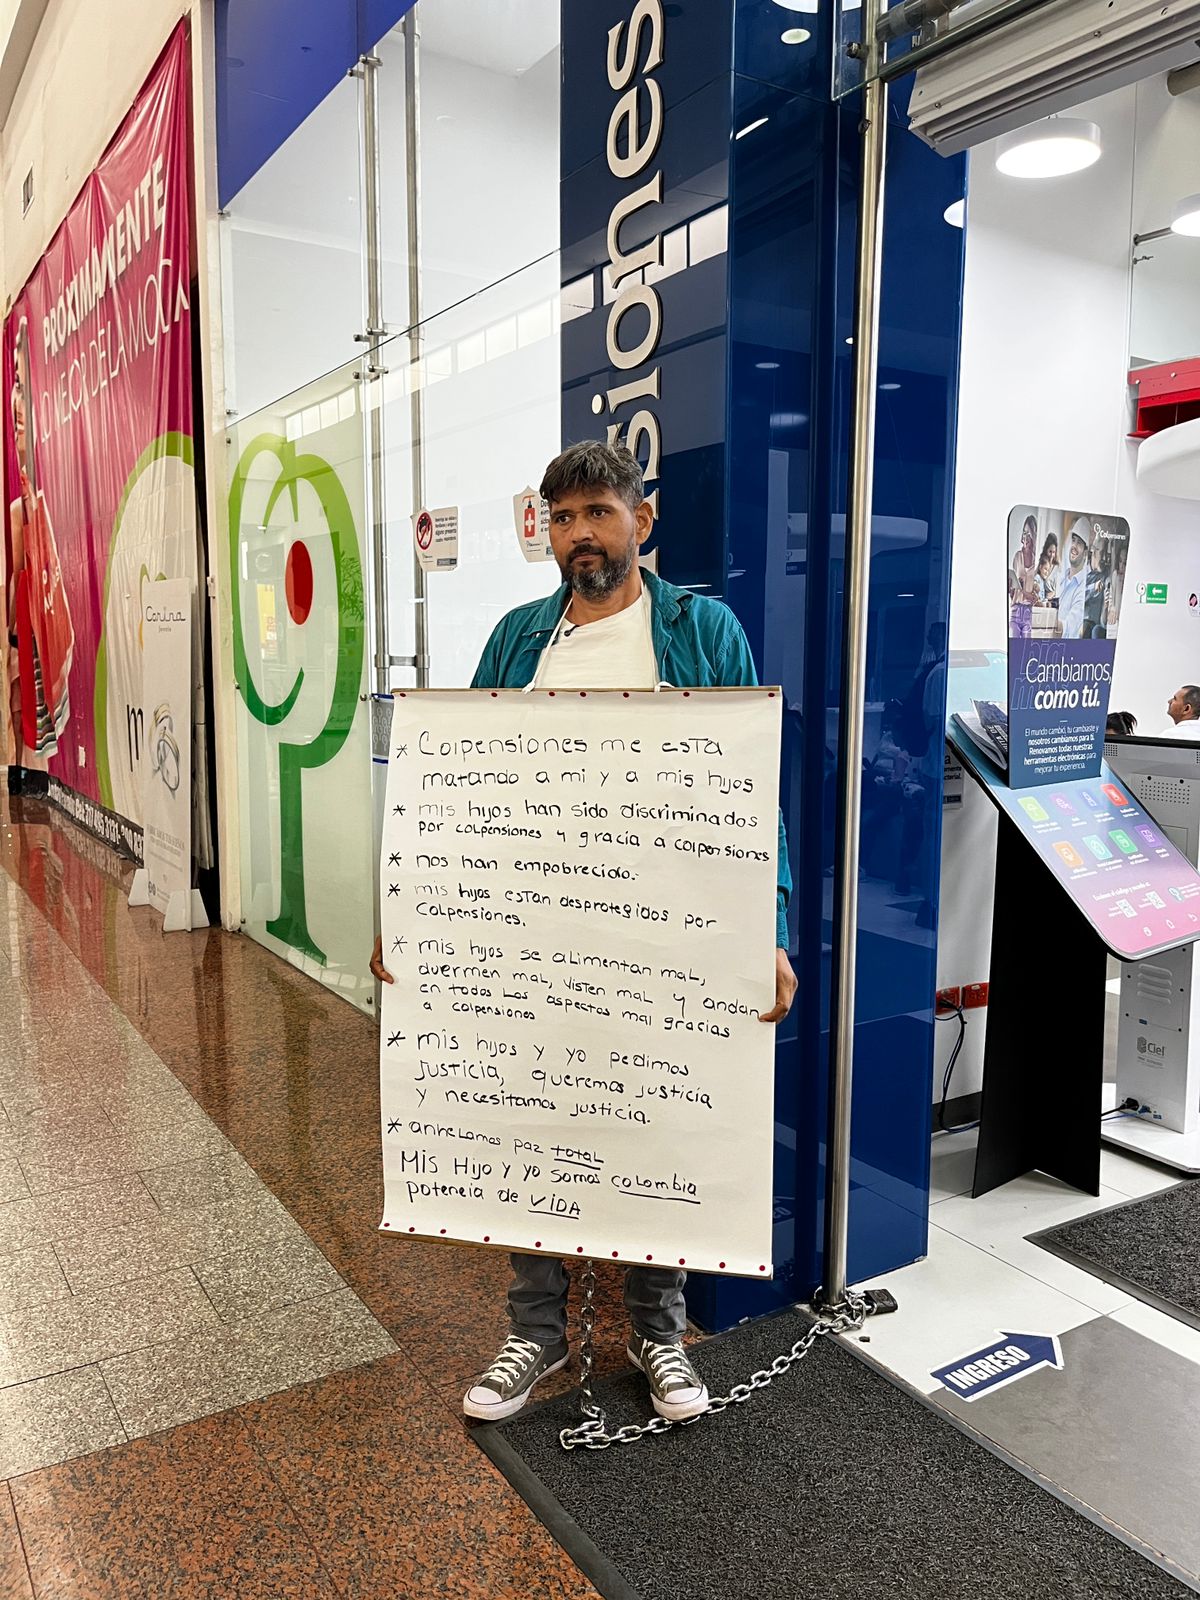 PRÓXIMAMENTE
LO MEJOR DE LA MODA
Carina
m
siones
* Colpensiones me esta
matando a mi y a mis hijos
* mis hijos han sido discriminados
por colpensiones y gracia a colpensiones
* nos han empobrecido.
* mis hijos estan desprotegidos por
Colpensiones.
* mis hijos se alimentan mal,
duermen mal, visten mal y andan
en todos los aspectos mal gracias
a colpensiones
* mis hijos y yo pedimos
justicia, queremos justicia
y necesitamos justicia.
* anhelamos paz total
Mis Hijo y yo somos colombia
potencia de VIDA
Colpensiones
Cambiamos,
como tú.
El mundo cambió, tu cambiaste y
nosotros cambiamos para ti.
Renovamos todas nuestras
herramientas electrónicas para
mejorar tu experiencia.
Ciel
INGRESO